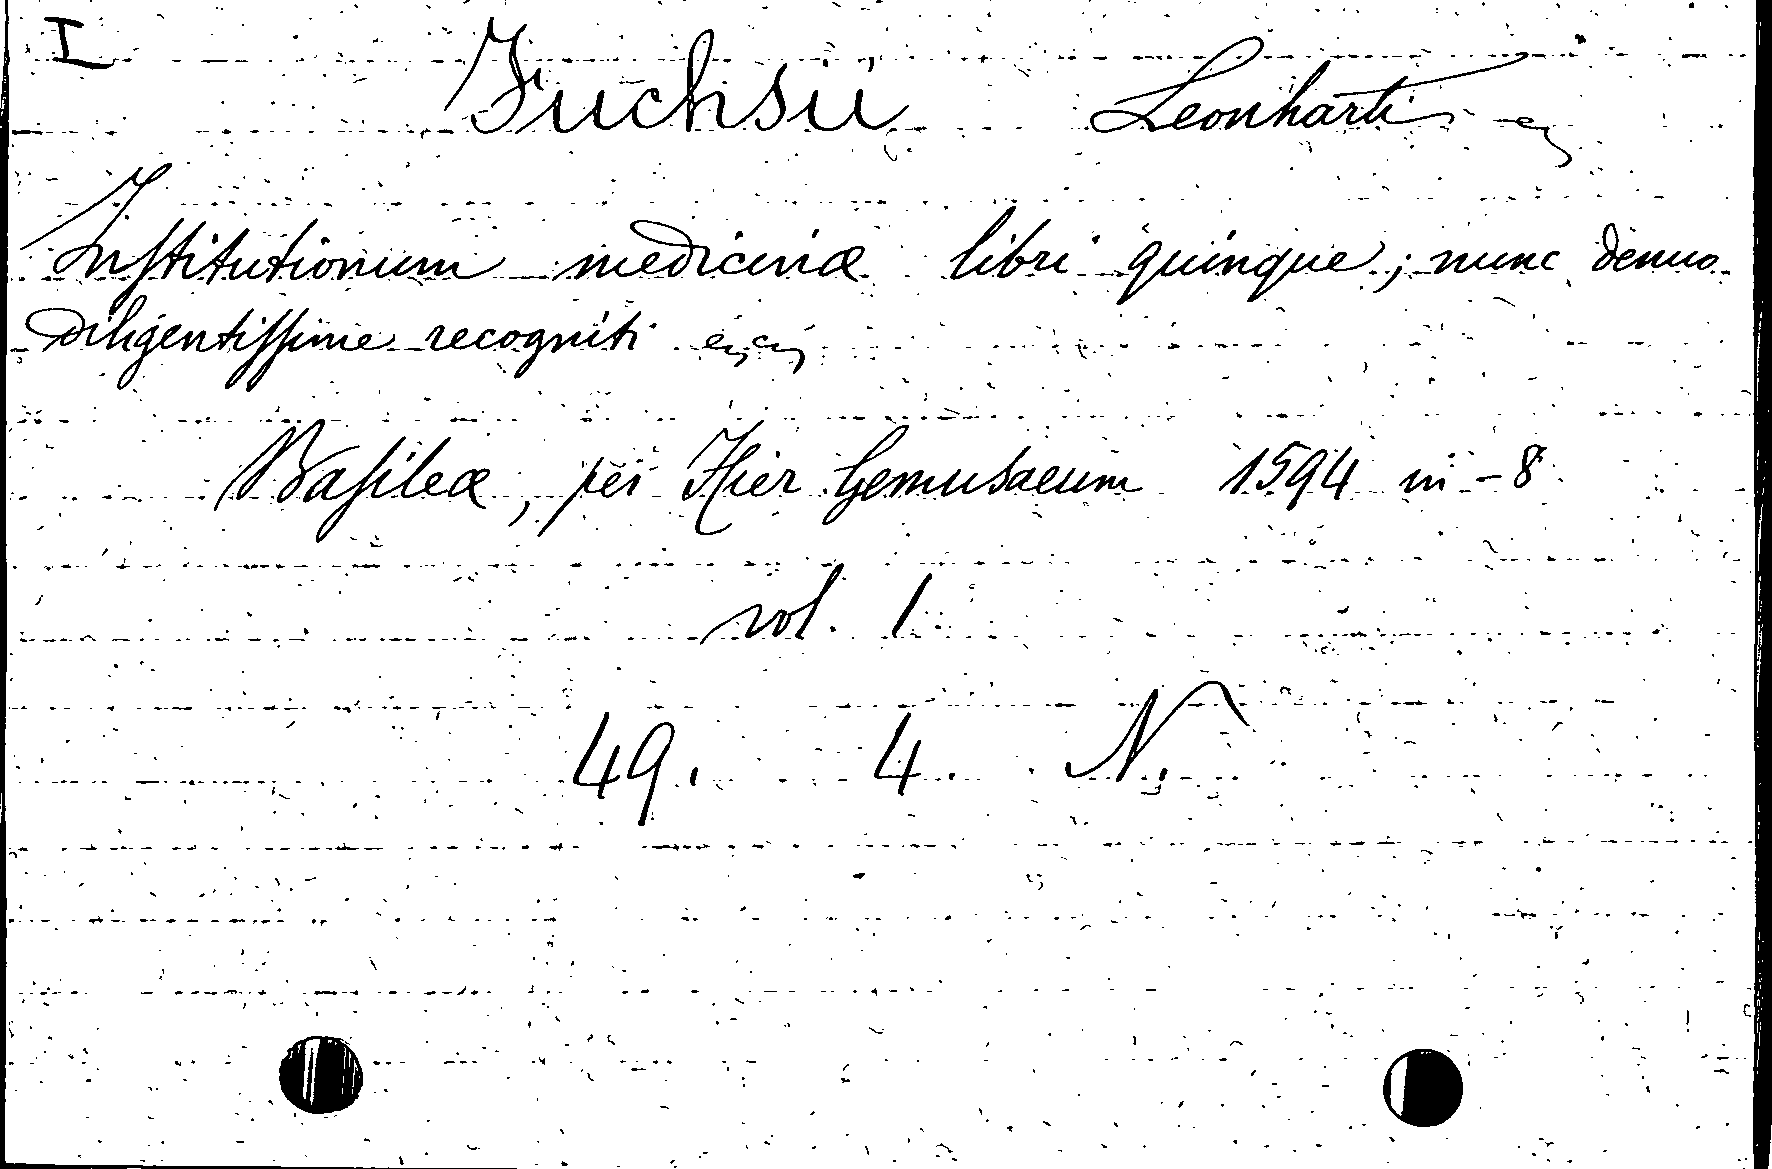 I
Fuchsii Leonharti
Institutionum medicinæ libri quinque; nunc denuo
diligentissime recogniti
Basileæ, per Hier Gemusaeum 1594 in-8
vol. 1
49. 4. N.